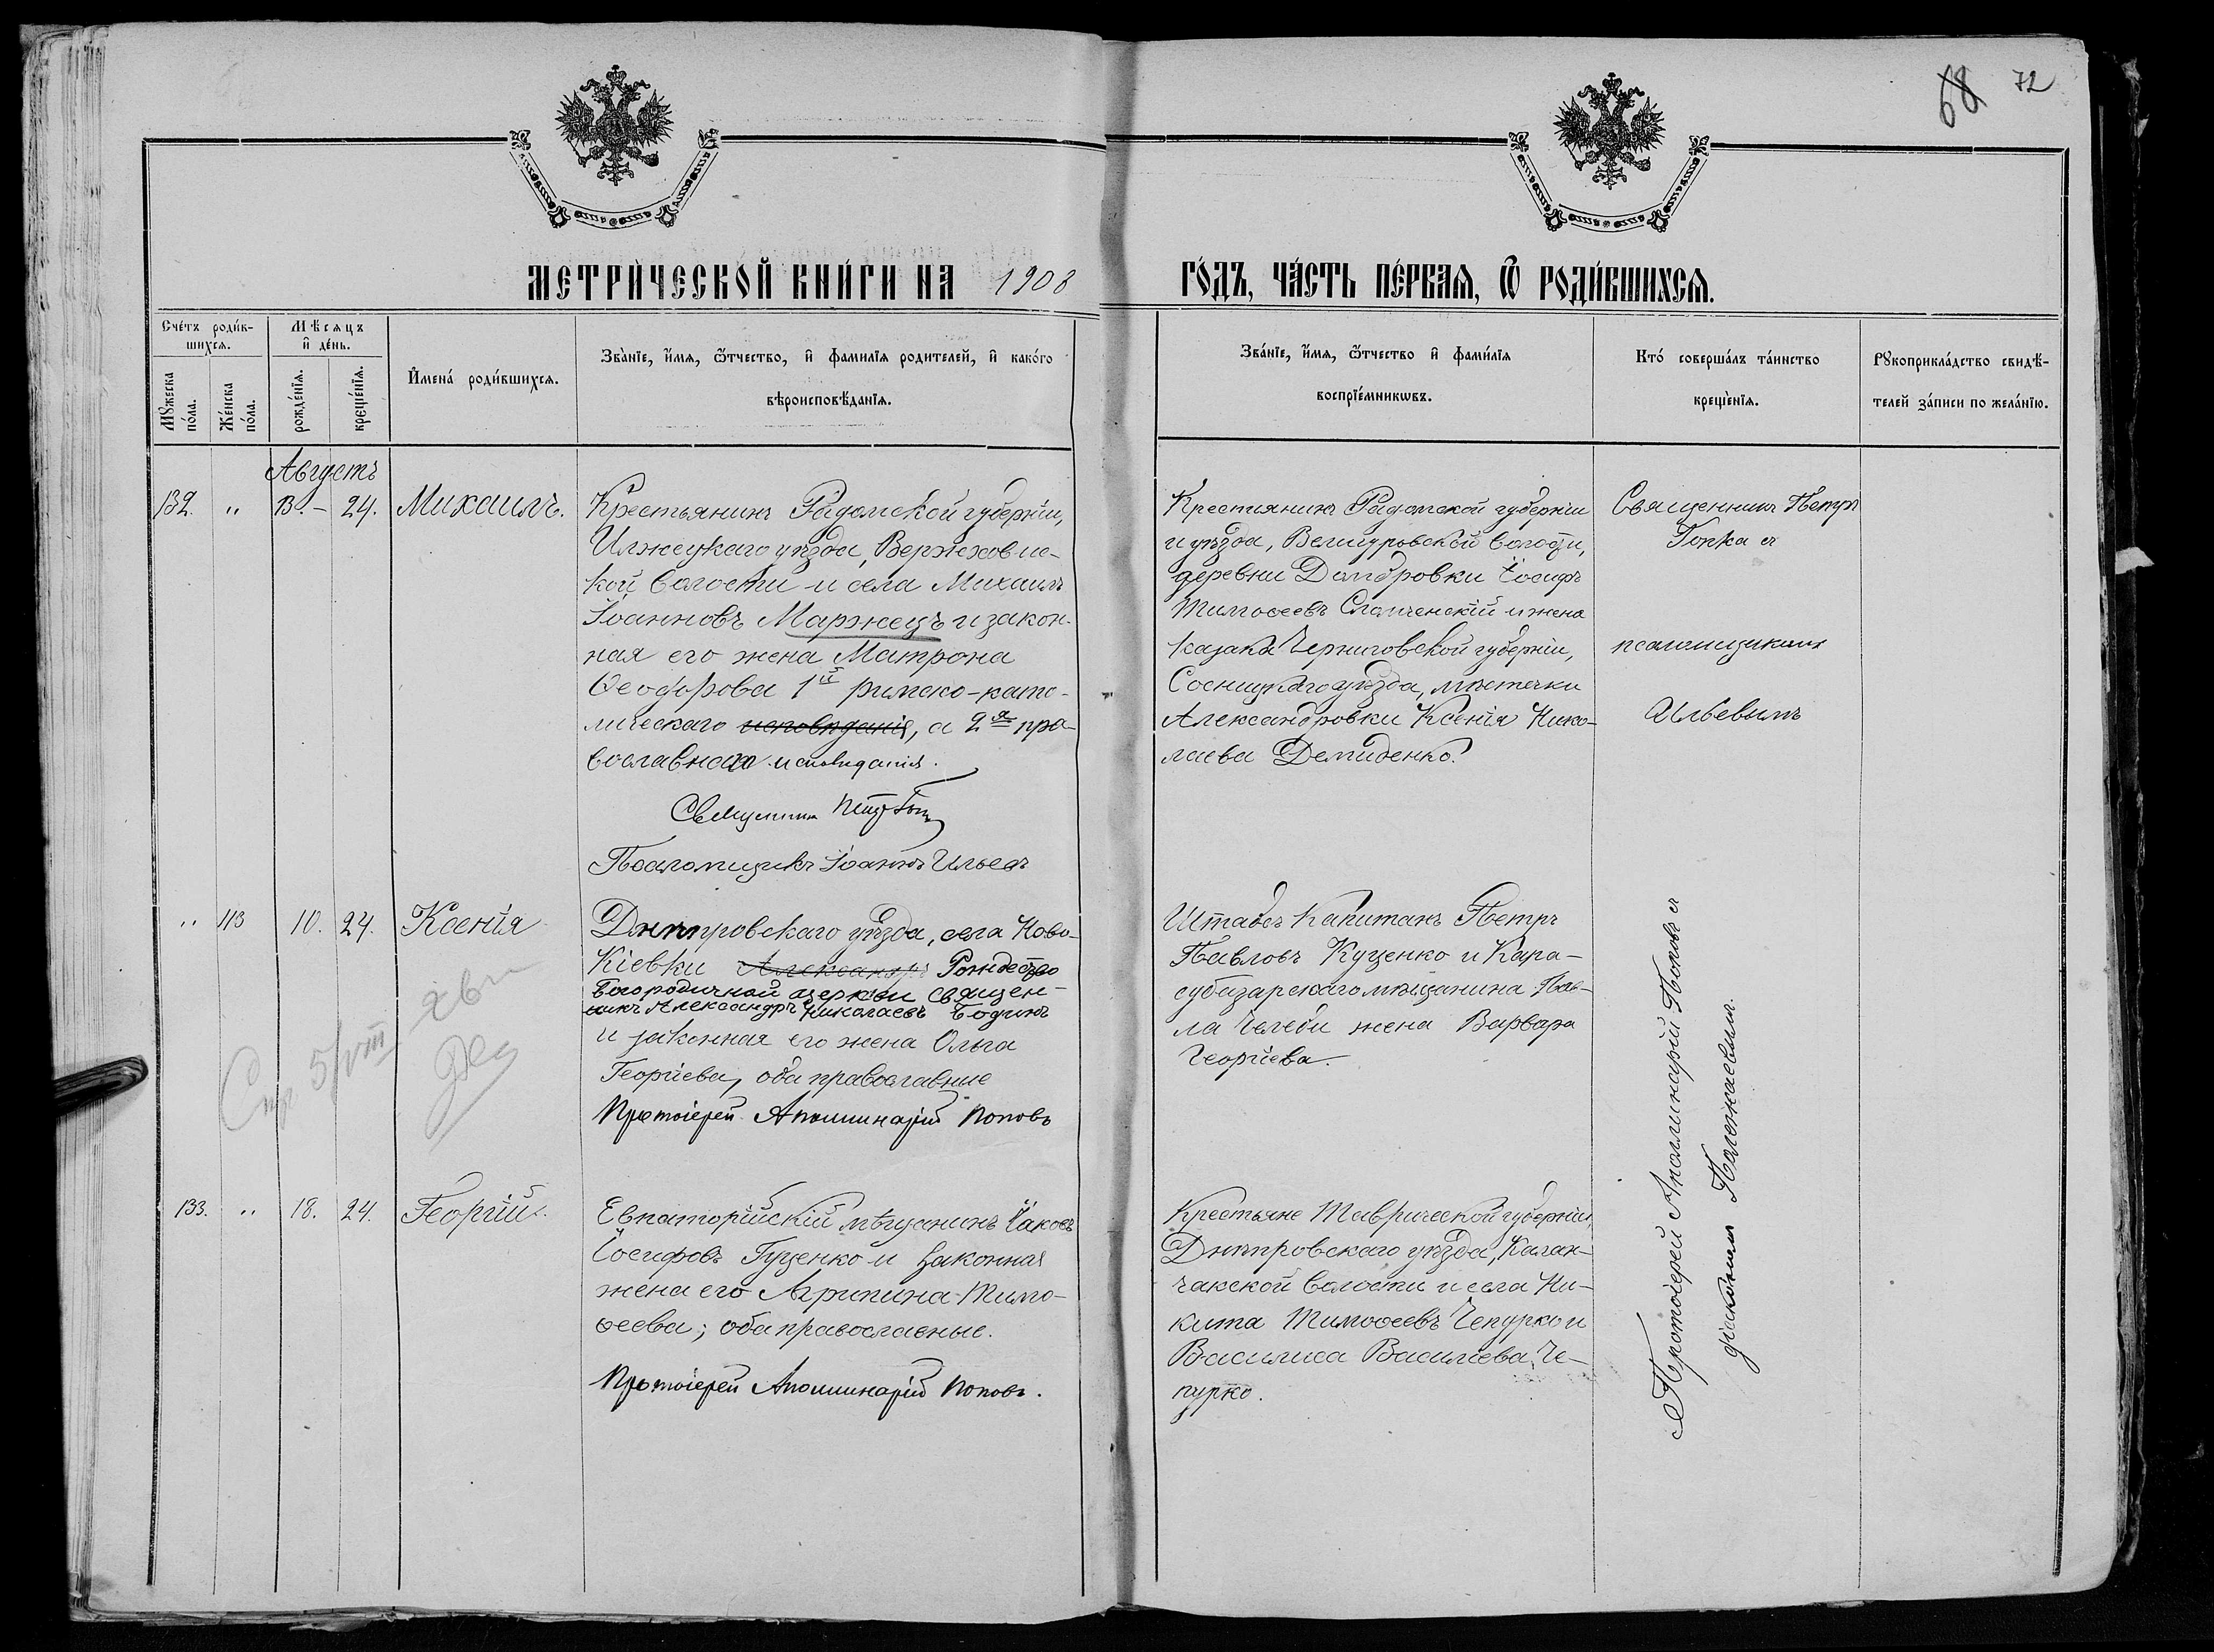 68 72
МЕТРИ́ЧЕСКОЙ КНИ́ГИ НА 1908 ГО́ДЪ, ЧА́СТЬ ПЕ́РВАѦ, Ѿ РОДИ́ВШИХСѦ.
Сче́тъ роди́в-
шихсѧ.
Мѣ́сѧцъ
и҆ де́нь.
И҆мена́ роди́вшихсѧ.
Зва́нїе, и҆́мѧ, ѻ҆́тчество, и҆ фами́лїѧ роди́телей, и҆ како́гѡ
вѣроисповѣ́данїѧ.
Мꙋ́жеска
по́ла.
Же́нска
по́ла.
рожде́нїѧ.
креще́нїѧ.
Зва́нїе, и҆́мѧ, ѻ҆́тчество и҆ фами́лїѧ
воспрїе́мникѡвъ.
Кто́ соверша́лъ та́инство
креще́нїѧ.
Рꙋкоприкла́дство свидѣ́-
телей за́писи по жела́нїю.
Августъ
132. " 13. – 24. Михаилъ.
Крестьянинъ Радомской губерніи,
Илжецкаго уѣзда, Вержховис-
кой волости и села Михаилъ
Іоанновъ Маржецъ и закон-
ная его жена Матрона
Ѳеодорова 1й римско-като-
лическаго исповѣданія, а 2я пра-
вославнаго исповѣданія.
Священникъ Петръ
Псаломщикъ Іоаннъ Ильевъ
Крестьянинъ Радомской губерніи
и уѣзда, волости,
деревни Домбровки Іосифъ
Тимоѳеевъ и жена
казака Черниговской губерніи,
Сосницкаго уѣзда, мѣстечки
Александровки Ксенія Нико-
лаева Демиденко.
Священникъ Петръ
Гопка съ
псаломщикомъ
Ильевымъ
" 113 10. 24. Ксенія
Днѣпровскаго уѣзда, села Ново-
Кіевки Александръ Рождество
Богородичной церкви священ-
никъ Александръ Николаевъ Бодинъ
и законная его жена Ольга
Георгіева, оба православные
Протоіерей Аполлинарій Поповъ
Штабсъ Капитанъ Петръ
Павловъ Куценко и Кара-
субазарскаго мѣщанина Пав-
ла Челеби жена Варвара
Георгіева.
5/VIII
133. " 18. 24. Георгій.
Евпаторійскій мѣщанинъ Іаковъ
Іосифовъ Гуценко и законная
жена его Агрипина Тимо-
ѳеева; оба православные.
Протоіерей Аполлинарій Поповъ.
Крестьяне Таврической губерніи,
Днѣпровскаго уѣзда, Калан-
чакской волости и села Ни-
кита Тимоѳеевъ Чепурко и
Василиса Васильева Че-
пурко.
Протоіерей Аполлинарій Поповъ съ
діакономъ